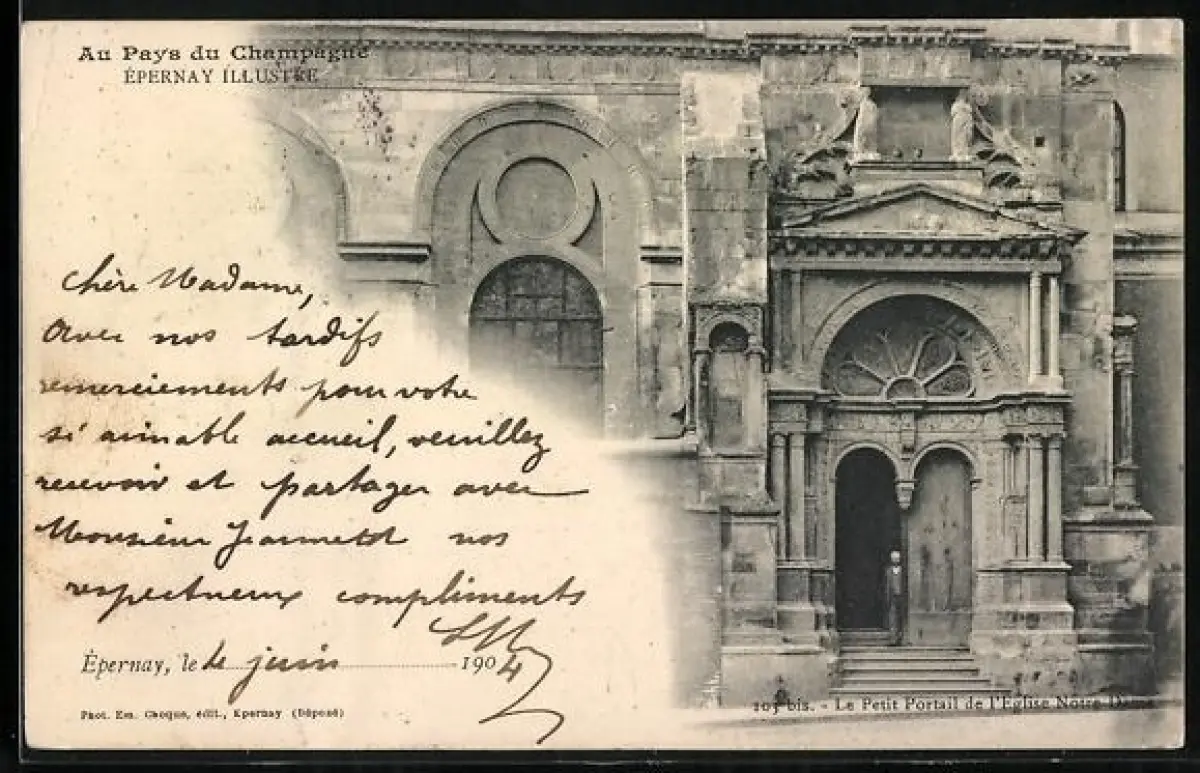 Au Pays du Champagne
ÉPERNAY ILLUSTRÉ
Chère Madame,
Avec nos tardifs
remerciements pour votre
si aimable accueil, veuillez
recevoir et partager avec
Monsieur Jeannetot nos
respectueux compliments
Épernay, le 4 juin 1904
Phot. Em. Choque, édit., Epernay (Déposé)
105 bis. - Le Petit Portail de l'Eglise Notre Dame